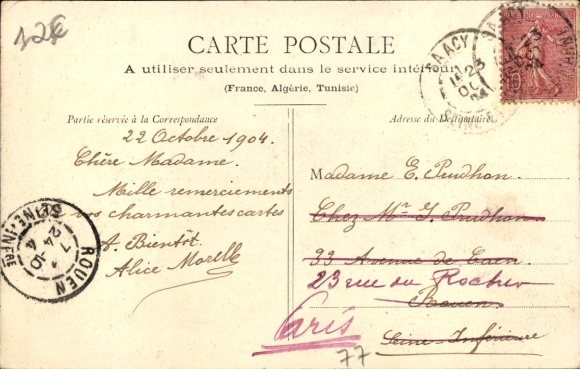 12€
CARTE POSTALE
A utiliser seulement dans le service intérieur
(France, Algérie, Tunisie)
Partie réservée à la Correspondance
22 Octobre 1904.
Chère Madame.
Mille remerciements
vos charmantes cartes
A. Bientôt
Alice Morell
Adresse du Destinataire.
Madame E. Prudhon.
Chez Mr J. Prudhon
33 Avenue de Caen
23 rue du Rocher
Rouen
Seine-Inférieure
Paris
77
SAACY
23
OCT
04
SEINE
ROUEN
7
24 10
4
SEINE-INFRE